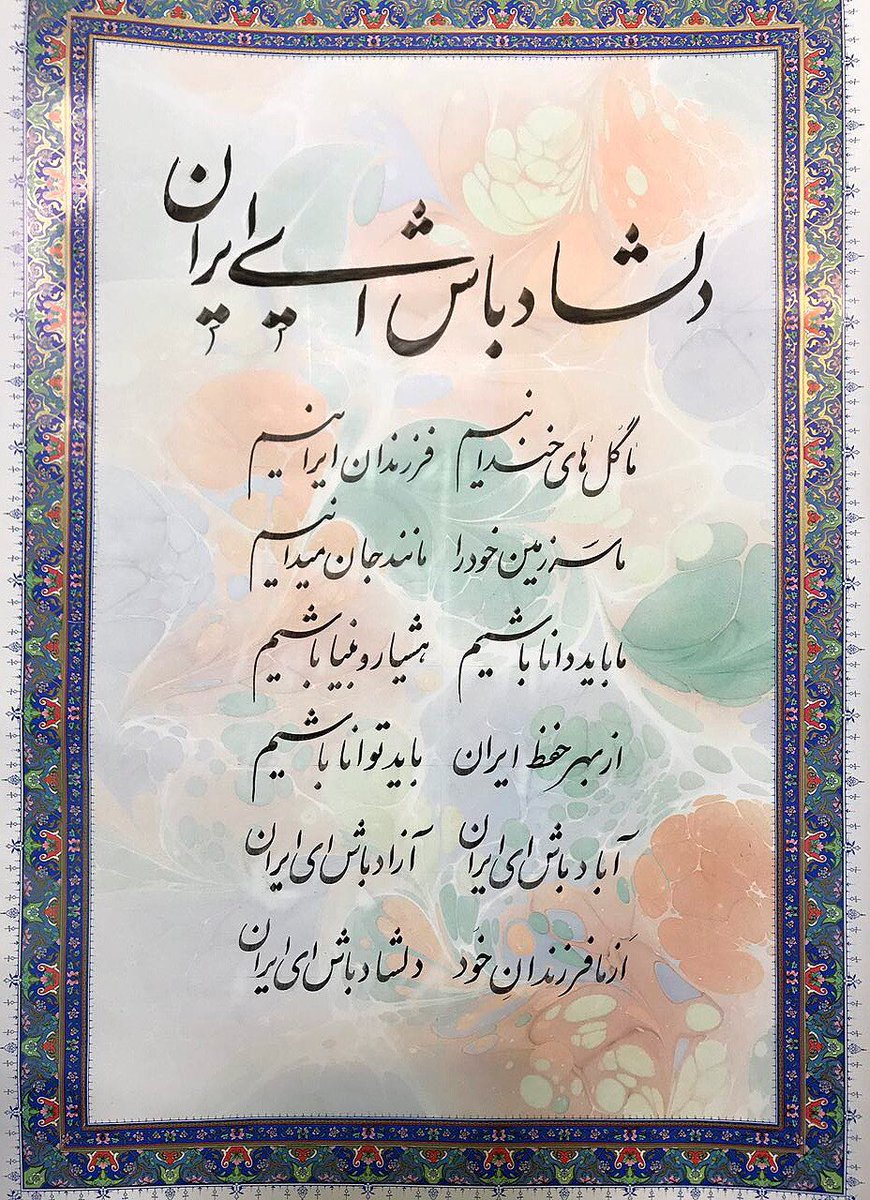 دلشاد باش ای ایران
ما گل های خندانیم فرزندان ایرانیم
ما سرزمین خود را مانند جان میدانیم
ما باید دانا باشیم هشیار و بینا باشیم
از بهر حفظ ایران باید توانا باشیم
آباد باش ای ایران آزاد باش ای ایران
از ما فرزندانِ خود دلشاد باش ای ایران